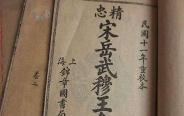 民國十一年重校各
精忠
宋岳武穆王全
上海錦章圖書局
卷二